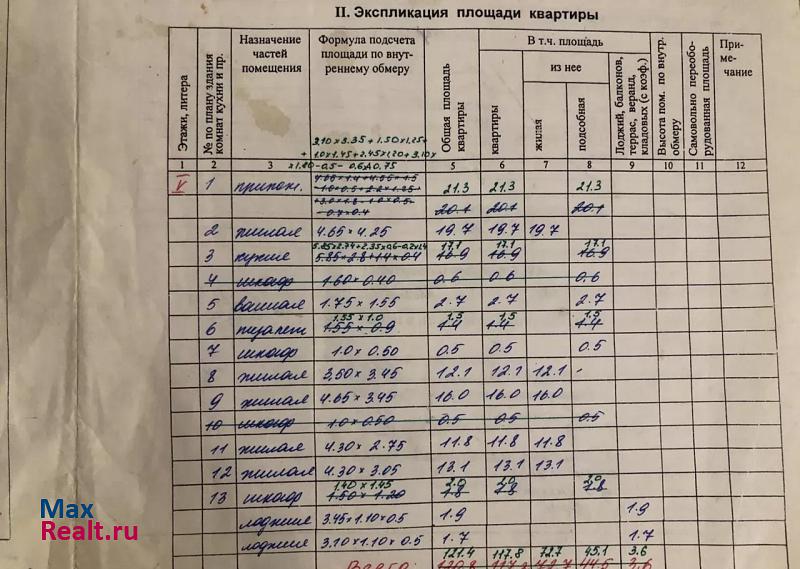 II. Экспликация площади квартиры
Этажи, литера
№ по плану здания комнат кухни и пр.
Назначение частей помещения
Формула подсчета площади по внутреннему обмеру
Общая площадь квартиры
В т.ч. площадь
квартиры
из нее
жилая
подсобная
Лоджий, балконов, террас, веранд, кладовых (с коэф.)
Высота пом. по внутр. обмеру
Самовольно переоборудованная площадь
Примечание
2.10 x 3.35 + 1.50 x 1.25 +
+ 1.0 x 1.45 + 2.45 x 1.20 + 3.10 x
x 1.20 - 0.5 - 0.6 x 0.75
1 2 3 5 6 7 8 9 10 11 12
V 1 прихож. 21.3 21.3 21.3
20.1 20.1 20.1
2 жилая 4.65 x 4.25 19.7 19.7 19.7
17.1 17.1 17.1
3 кухня 5.85 x 2.8 + 1.4 x 0.4 16.9 16.9 16.9
4 шкаф 1.60 x 0.40 0.6 0.6 0.6
5 ванная 1.75 x 1.55 2.7 2.7 2.7
1.55 x 1.0 1.5 1.5 1.5
6 туалет 1.55 x 0.9 1.4 1.4 1.4
7 шкаф 1.0 x 0.50 0.5 0.5 0.5
8 жилая 3.50 x 3.45 12.1 12.1 12.1 -
9 жилая 4.65 x 3.45 16.0 16.0 16.0
10 шкаф 1.0 x 0.50 0.5 0.5 0.5
11 жилая 4.30 x 2.75 11.8 11.8 11.8
12 жилая 4.30 x 3.05 13.1 13.1 13.1
1.40 x 1.45 2.0 2.0 2.0
13 шкаф 1.50 x 1.20 1.8 1.8 1.8
лоджия 3.45 x 1.10 x 0.5 1.9 1.9
лоджия 3.10 x 1.10 x 0.5 1.7 1.7
121.4 117.8 72.7 45.1 3.6
Всего: 3.6
Max
Realt.ru